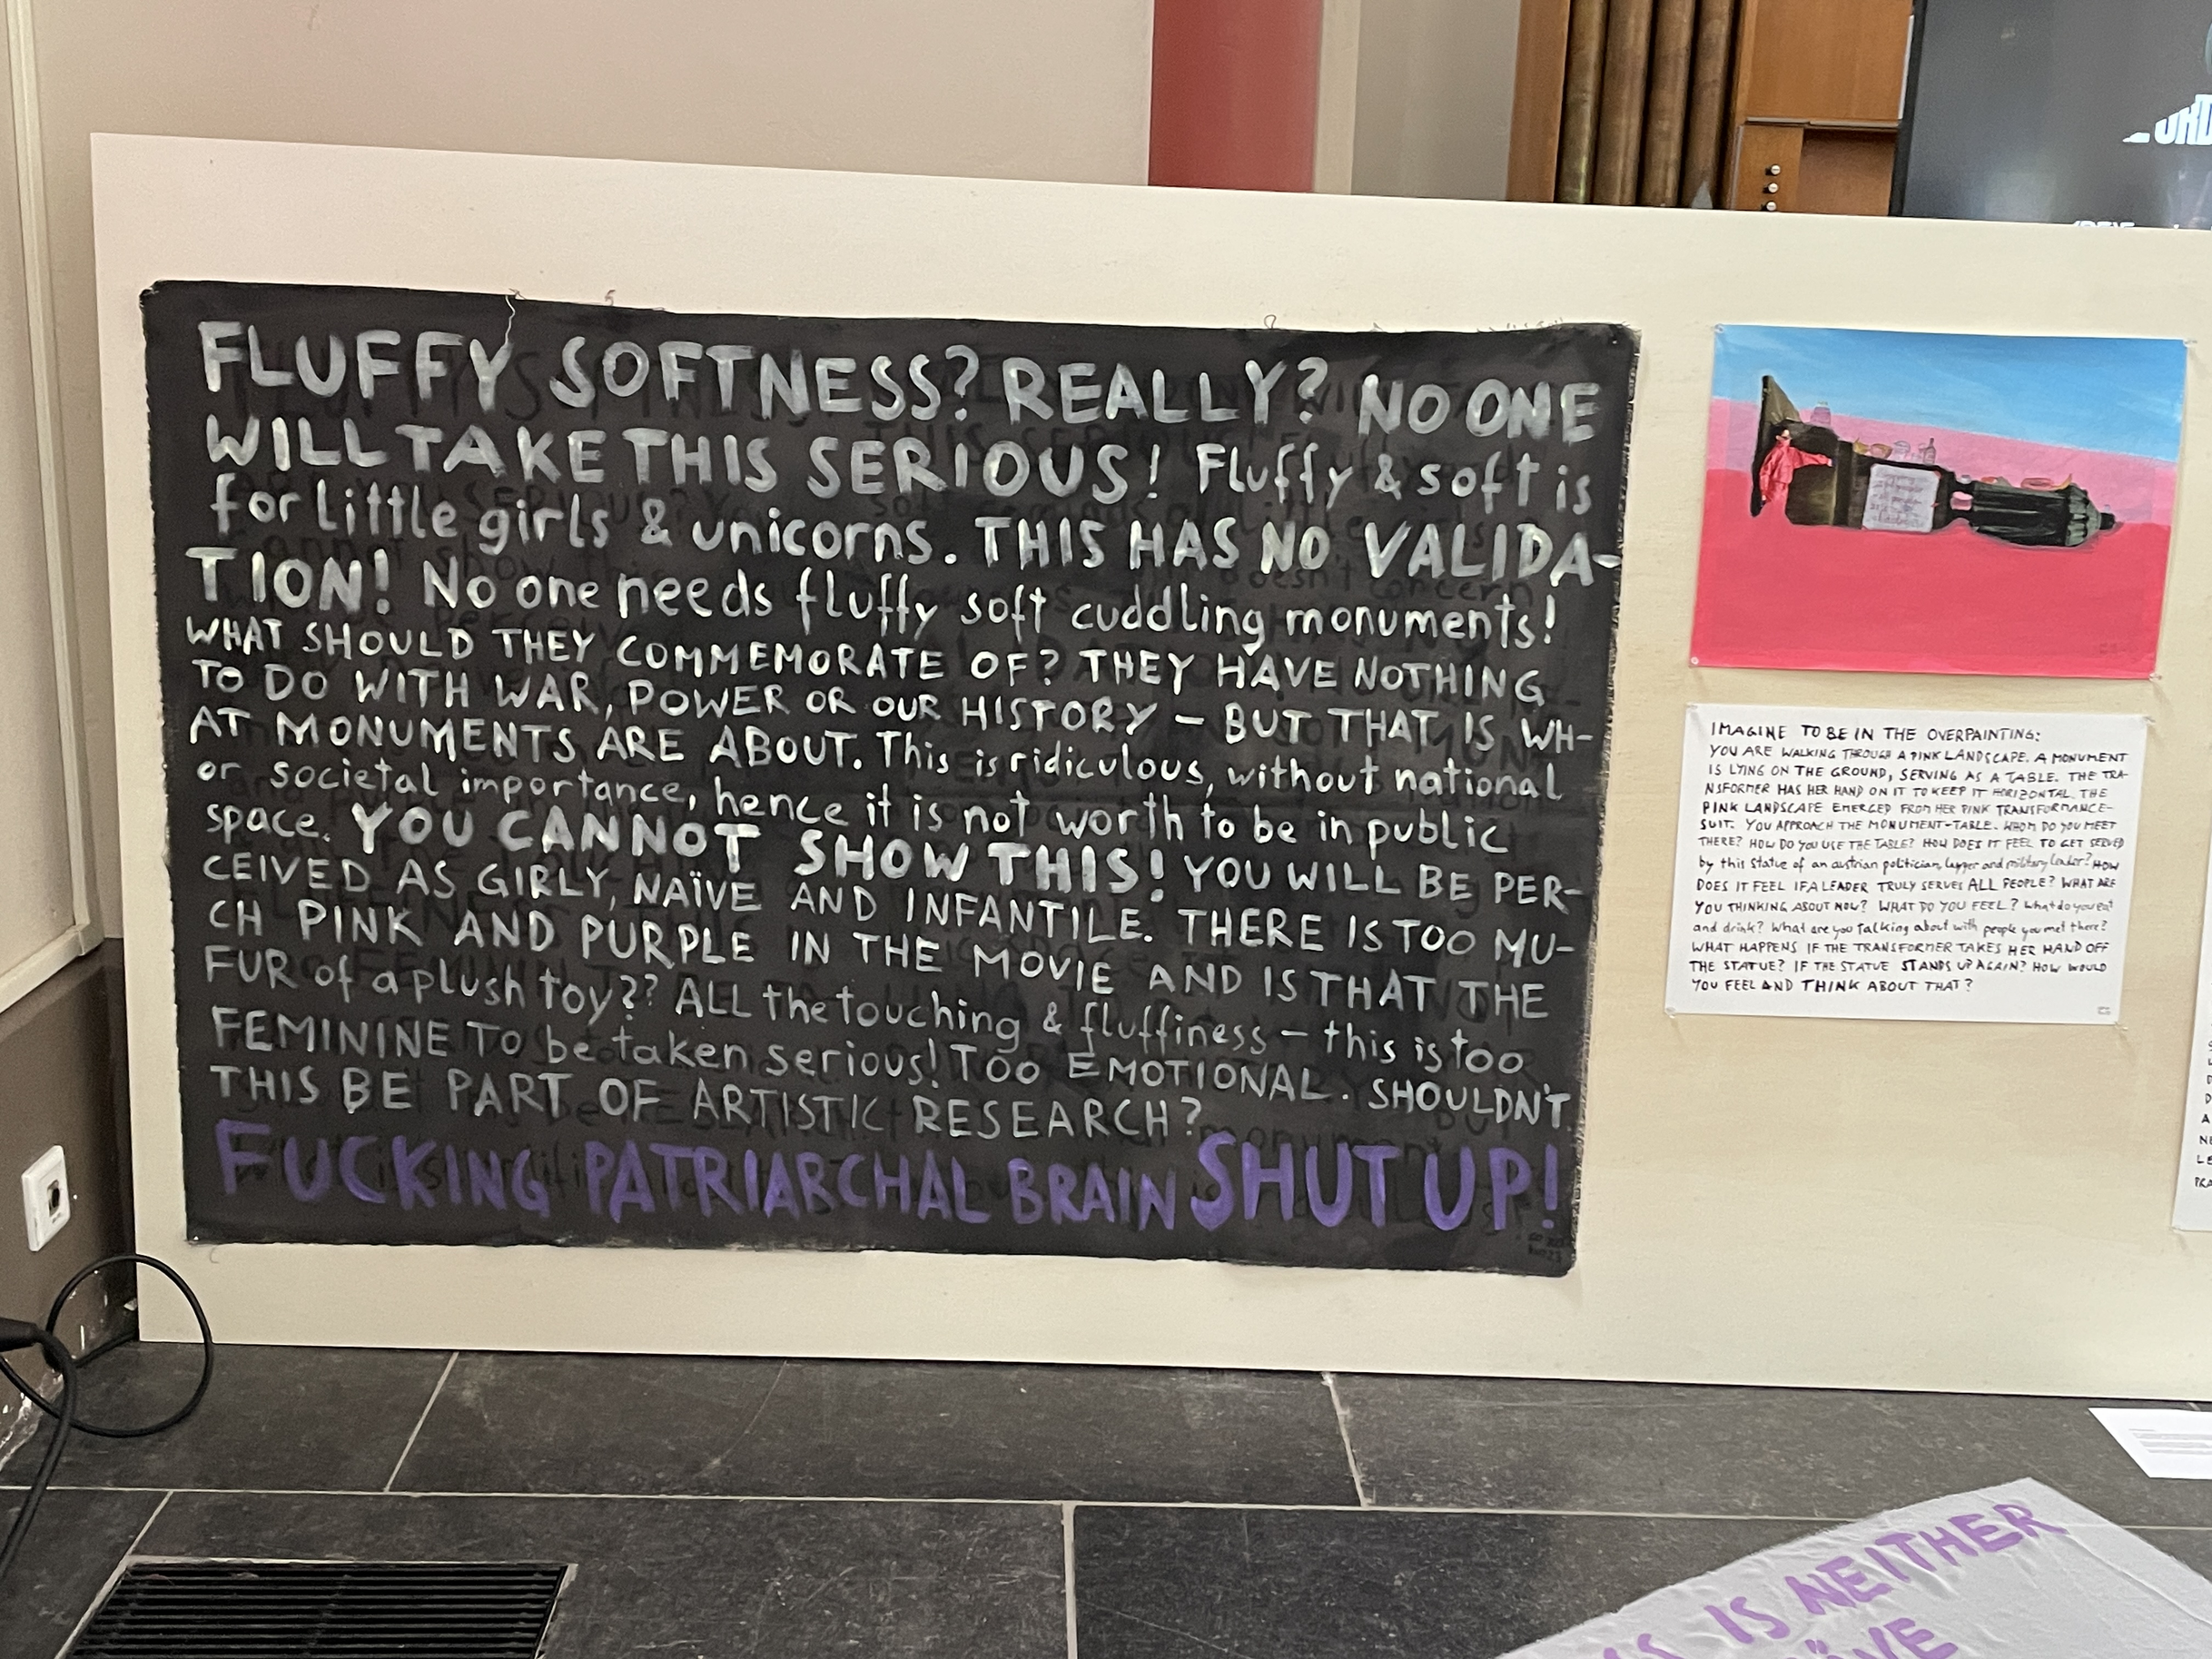 FLUFFY SOFTNESS? REALLY? NO ONE
WILL TAKE THIS SERIOUS! Fluffy & soft is
for little girls & unicorns. THIS HAS NO VALIDA-
TION! No one needs fluffy soft cuddling monuments!
WHAT SHOULD THEY COMMEMORATE OF? THEY HAVE NOTHING
TO DO WITH WAR, POWER OR OUR HISTORY – BUT THAT IS WH-
AT MONUMENTS ARE ABOUT. This is ridiculous, without national
or societal importance, hence it is not worth to be in public
space. YOU CANNOT SHOW THIS! YOU WILL BE PER-
CEIVED AS GIRLY, NAÏVE AND INFANTILE. THERE IS TOO MU-
CH PINK AND PURPLE IN THE MOVIE AND IS THAT THE
FUR of a plush toy?? ALL the touching & fluffiness – this is too
FEMININE TO be taken serious! TOO EMOTIONAL. SHOULDN'T
THIS BE PART OF ARTISTIC RESEARCH?
FUCKING PATRIARCHAL BRAIN SHUT UP!
IMAGINE TO BE IN THE OVERPAINTING:
YOU ARE WALKING THROUGH A PINK LANDSCAPE. A MONUMENT
IS LYING ON THE GROUND, SERVING AS A TABLE. THE TRA-
NSFORMER HAS HER HAND ON IT TO KEEP IT HORIZONTAL. THE
PINK LANDSCAPE EMERGED FROM HER PINK TRANSFORMANCE-
SUIT. YOU APPROACH THE MONUMENT-TABLE. WHOM DO YOU MEET
THERE? HOW DO YOU USE THE TABLE? HOW DOES IT FEEL TO GET SERVED
by this statue of an austrian politician, and military leader? HOW
DOES IT FEEL IF A LEADER TRULY SERVES ALL PEOPLE? WHAT ARE
YOU THINKING ABOUT NOW? WHAT DO YOU FEEL? What do you eat
and drink? What are you talking about with people you met there?
WHAT HAPPENS IF THE TRANSFORMER TAKES HER HAND OFF
THE STATUE? IF THE STATUE STANDS UP AGAIN? HOW WOULD
YOU FEEL AND THINK ABOUT THAT?
IS NEITHER